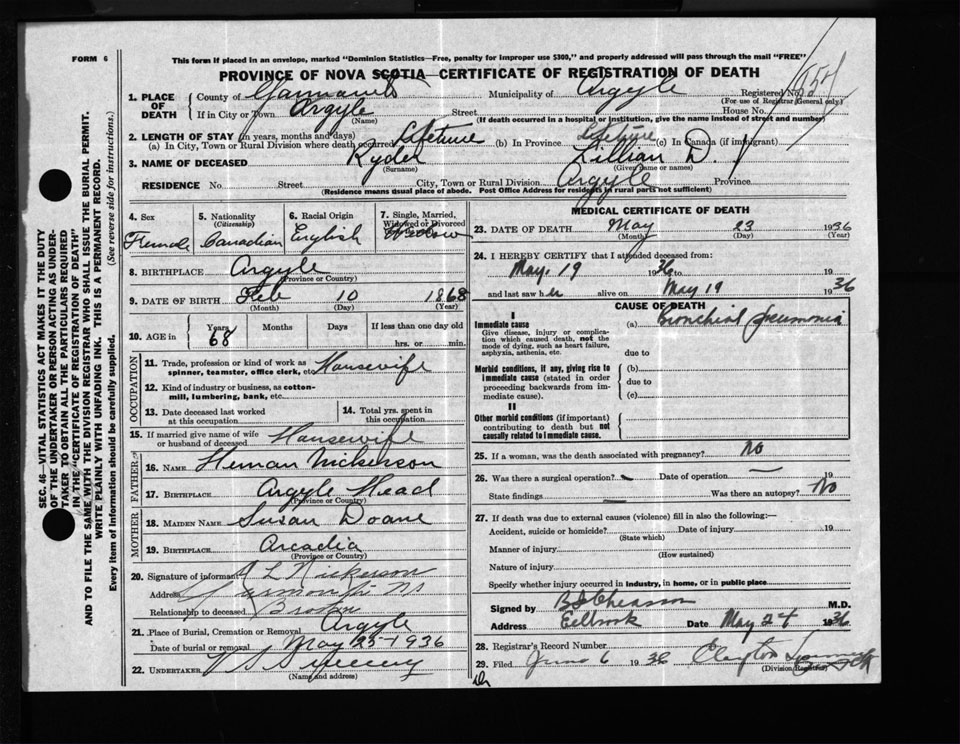 FORM 6
This form if placed in an envelope, marked "Dominion Statistics—Free, penalty for improper use $300," and properly addressed will pass through the mail "FREE"
PROVINCE OF NOVA SCOTIA—CERTIFICATE OF REGISTRATION OF DEATH
1. PLACE OF DEATH
County of Yarmouth Municipality of Argyle Registered No.
(For use of Registrar General only)
If in City or Town Argyle Street House No.
(Name) (If death occurred in a hospital or institution, give the name instead of street and number)
2. LENGTH OF STAY (in years, months and days)
(a) In City, Town or Rural Division where death occurred Lifetime (b) In Province Lifetime (c) In Canada (if immigrant)
3. NAME OF DECEASED Ryder Lillian D.
(Surname) (Given name or names)
RESIDENCE No. Street City, Town or Rural Division Argyle Province
(Residence means usual place of abode. Post Office Address for residents in rural parts not sufficient)
4. Sex Female
5. Nationality (Citizenship) Canadian
6. Racial Origin English
7. Single, Married, Widowed or Divorced Widow
8. BIRTHPLACE Argyle
(Province or Country)
9. DATE OF BIRTH Feb 10 1868
(Month) (Day) (Year)
10. AGE in Years 68 Months Days If less than one day old hrs. or min.
OCCUPATION
11. Trade, profession or kind of work as spinner, teamster, office clerk, etc. Housewife
12. Kind of industry or business, as cotton-mill, lumbering, bank, etc.
13. Date deceased last worked at this occupation
14. Total yrs. spent in this occupation
15. If married give name of wife or husband of deceased Housewife
FATHER
16. NAME Heman Nickerson
17. BIRTHPLACE Argyle Head
(Province or Country)
MOTHER
18. MAIDEN NAME Susan Doane
19. BIRTHPLACE Arcadia
(Province or Country)
20. Signature of informant A L Nickerson
Address Yarmouth NS
Relationship to deceased Brother
21. Place of Burial, Cremation or Removal Argyle
Date of burial or removal May 25-1936
22. UNDERTAKER Sweeney
(Name and address)
MEDICAL CERTIFICATE OF DEATH
23. DATE OF DEATH May 23 1936
(Month) (Day) (Year)
24. I HEREBY CERTIFY that I attended deceased from:
May. 19 1936 to 19
and last saw her alive on May 19 1936
CAUSE OF DEATH
I
Immediate cause (a) Bronchial pneumonia
Give disease, injury or complication which caused death, not the mode of dying, such as heart failure, asphyxia, asthenia, etc.
due to
Morbid conditions, if any, giving rise to immediate cause (stated in order proceeding backwards from immediate cause).
(b)
due to
(c)
II
Other morbid conditions (if important) contributing to death but not causally related to immediate cause.
25. If a woman, was the death associated with pregnancy? No
26. Was there a surgical operation? Date of operation 19
State findings Was there an autopsy? No
27. If death was due to external causes (violence) fill in also the following:—
Accident, suicide or homicide? Date of injury 19
(State which)
Manner of injury
(How sustained)
Nature of injury
Specify whether injury occurred in industry, in home, or in public place
Signed by M.D.
Address Eelbrook Date May 24 1936
28. Registrar's Record Number
29. Filed June 6 1936 Clayton
(Division Registrar)
SEC. 46—VITAL STATISTICS ACT MAKES IT THE DUTY OF THE UNDERTAKER OR PERSON ACTING AS UNDERTAKER TO OBTAIN ALL THE PARTICULARS REQUIRED IN THE "CERTIFICATE OF REGISTRATION OF DEATH" AND TO FILE THE SAME WITH THE DIVISION REGISTRAR WHO SHALL ISSUE THE BURIAL PERMIT.
WRITE PLAINLY WITH UNFADING INK. THIS IS A PERMANENT RECORD.
Every item of Information should be carefully supplied. (See reverse side for instructions.)